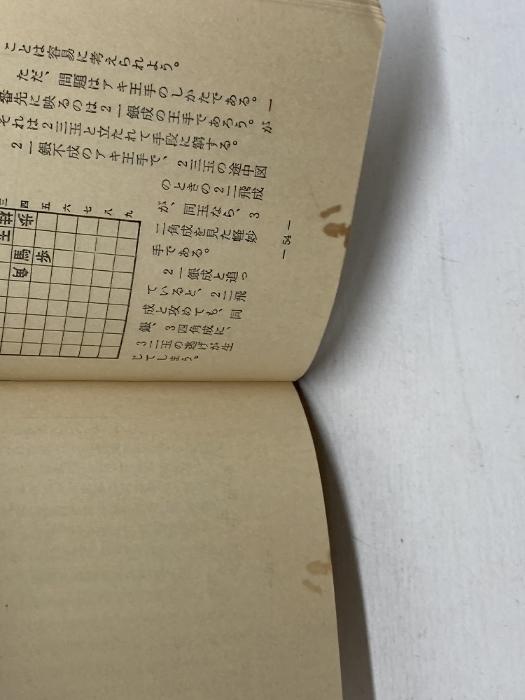 ことは容易に考えられよう。
ただ、問題はアキ王手のしかたである。一
番先に映るのは2一銀成の王手であろう。が
それは2三玉と立たれて手段に窮する。
2一銀不成のアキ王手で、2三玉の途中図
のときの2二飛成
が、同玉なら、3
二角成を見た軽妙
手である。
2一銀成と追っ
ていると、2二飛
成と攻めても、同
銀、3四角成に、
3二玉の逃げが生
じてしまう。
三
四
五
六
七
八
九
歩
王
馬
歩
— 54 —